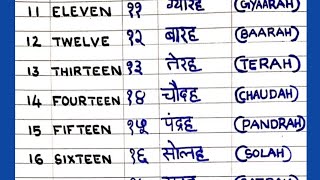 11 ELEVEN ११ ग्यारह (GYAARAH)
12 TWELVE १२ बारह (BAARAH)
13 THIRTEEN १३ तेरह (TERAH)
14 FOURTEEN १४ चौदह (CHAUDAH)
15 FIFTEEN १५ पंद्रह (PANDRAH)
16 SIXTEEN १६ सोलह (SOLAH)